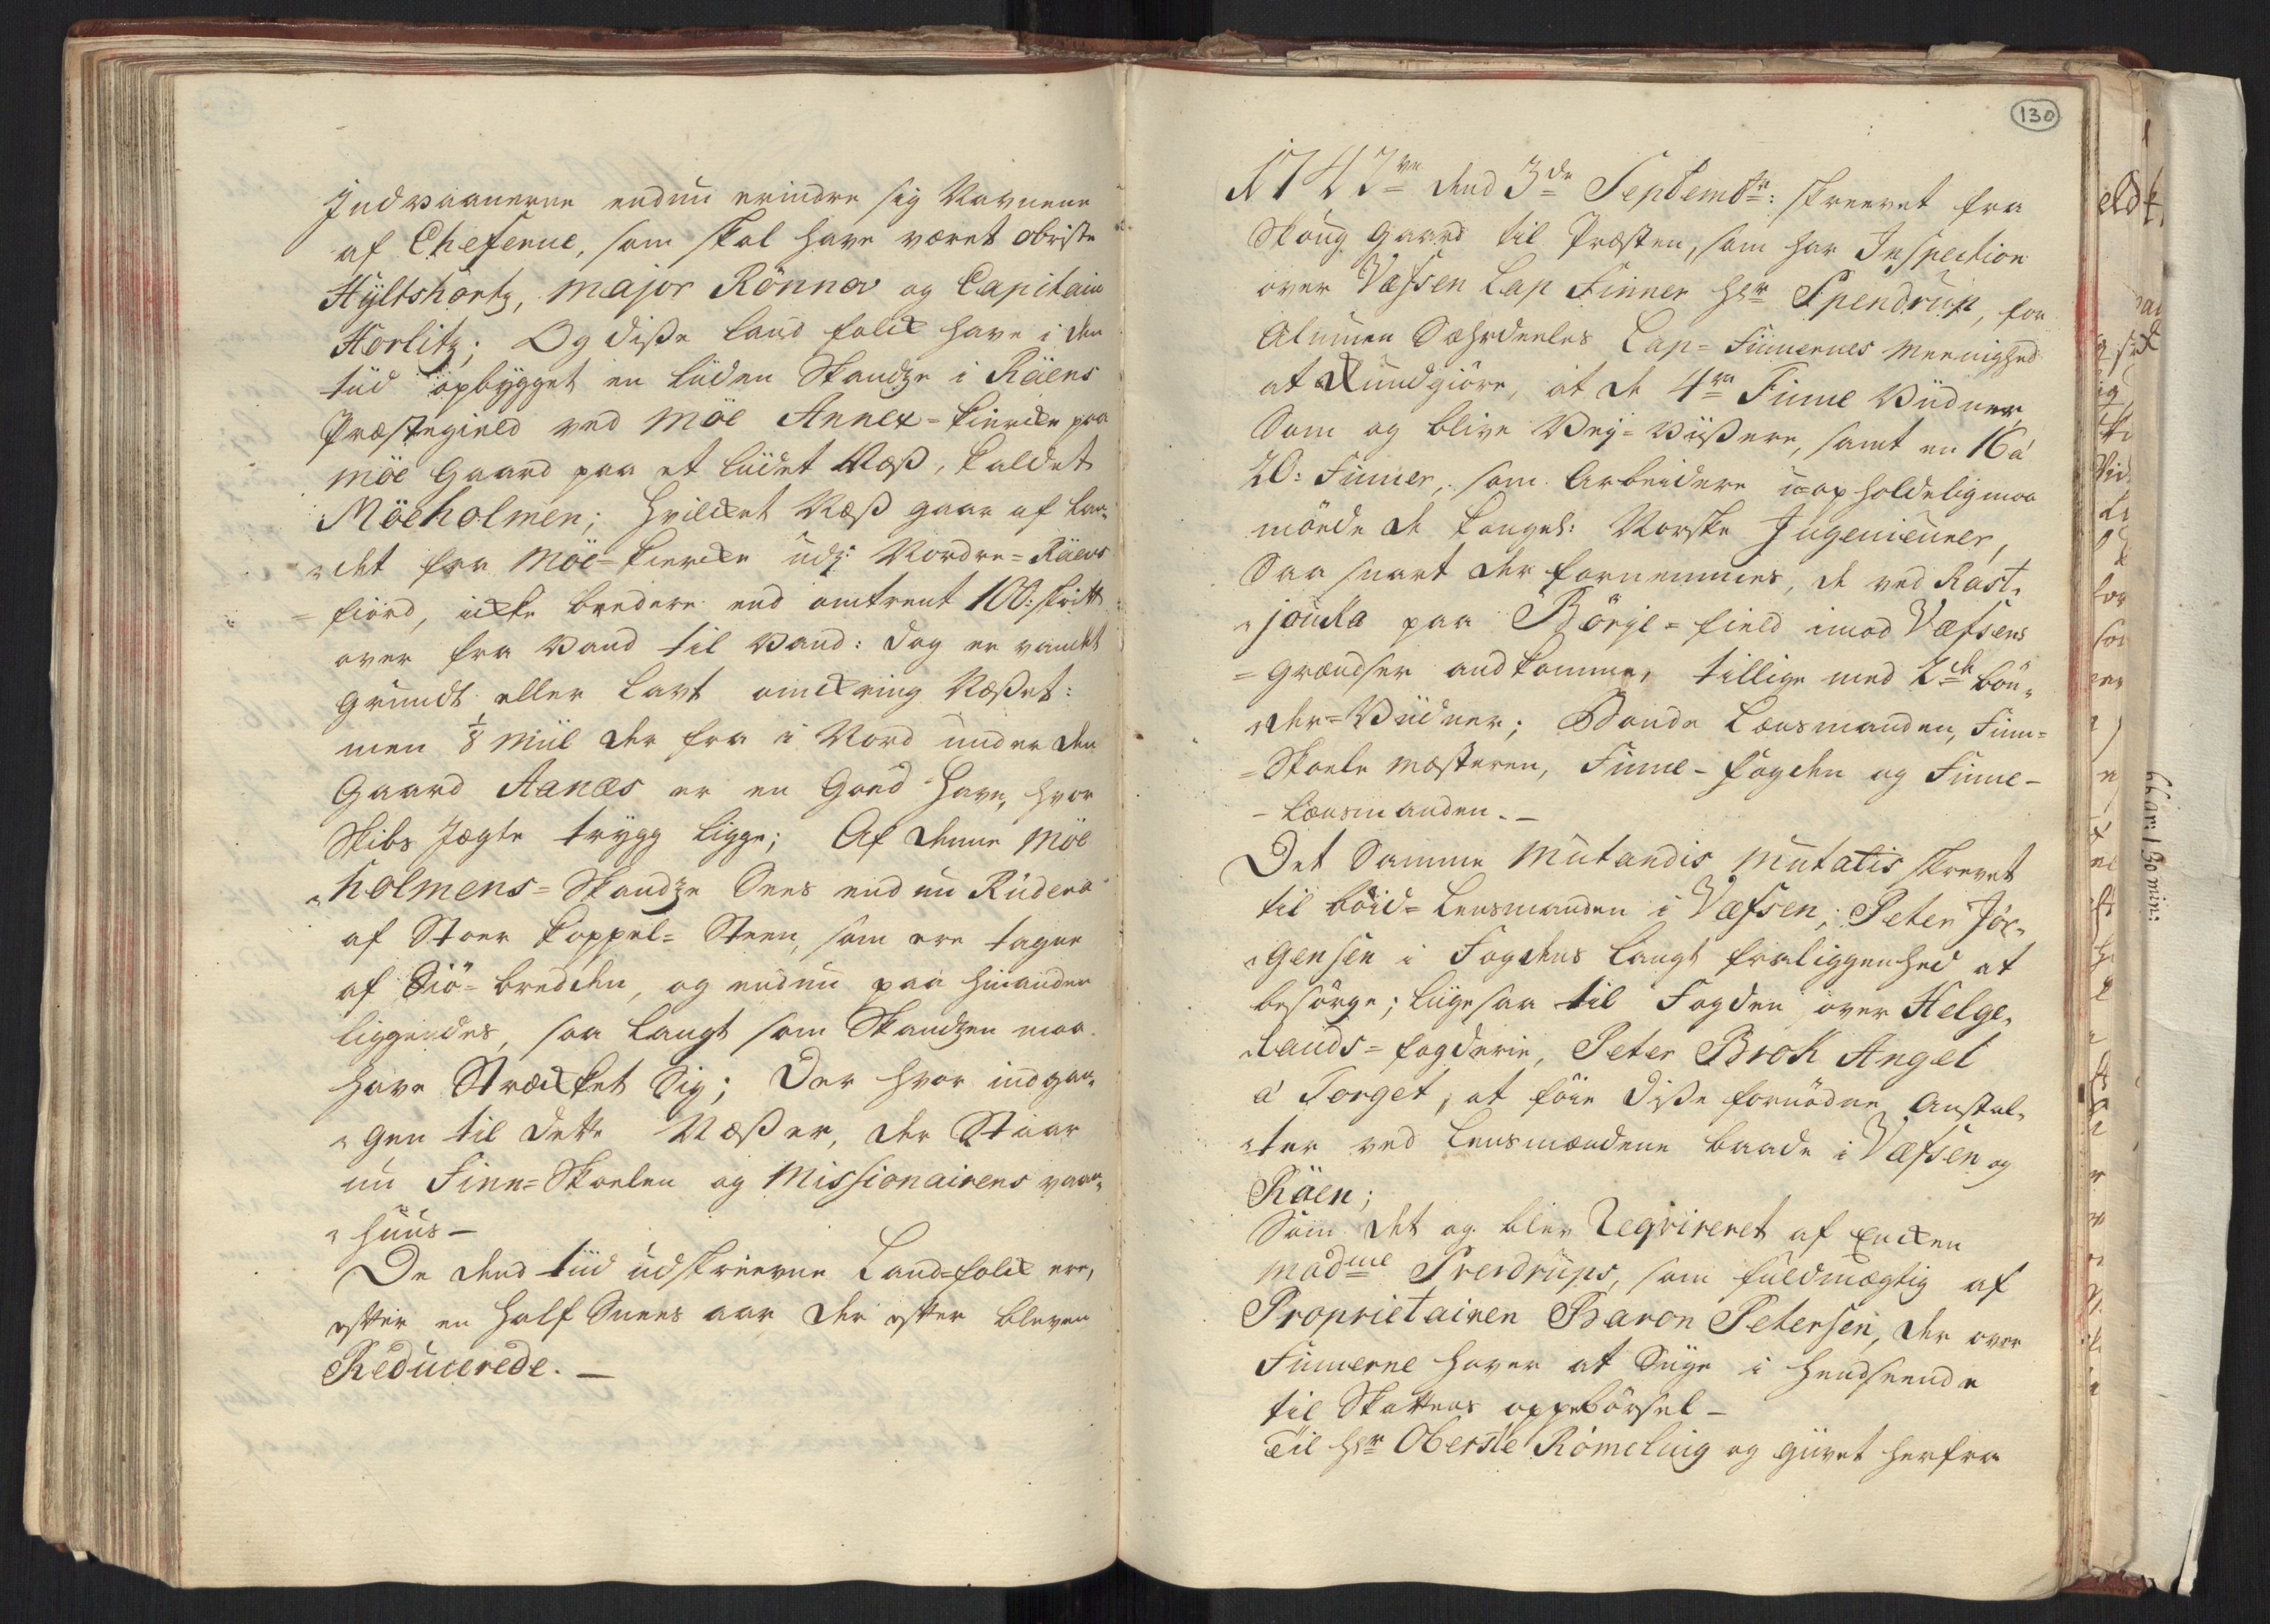 Indvaanerne endnu erindre sig Navnene
af Cheferne, som skal have været obriste
Hÿltshortz, major Rönnov og Capitain
Horlitz; Og disse land folck have i den
tiid opbÿgget en liiden Skandze i Räens
Præstegield ved Möe Annex-kiercke paa
möe Gaard paa et liidet Næss, kaldet
Möeholmen; hvilcket Næss gaar af lan„
„det fra Möe-kiercke udj Nordre-Räens
=fiord, icke bredere end omtrent 100: skritt
over fra Vand til Vand: dog er vandet
grundt eller lavt omkring Næsset:
men 1/8 Miil der fra i Nord under den
Gaard Aanæs er en God Havn, hvor
Skibs Jægte trÿgg ligge; Af denne Möe
„holmens-Skandze Sees endnu Rudera
af Stoer koppel-Steen, som ere tagne
af Siö-bredden, og endnu paa hinanden
liggendes, saa langt som Skandzen maa
have Stræcket Sig; Der hvor indgan„
„gen til dette Næss er, der Staar
nu Finn-Skoelen og Missionairens vaan„
„huus —
De dend tiid udskreevne Land-folck ere,
efter en half Snees aar der efter bleven
Reducerede. —
130
1742 dend 3de Septembr: skreevet fra
Skoug Gaard til Præsten, som har Inspection
over Vefsen Lap Finner Hr Spendrup, for
Almuen Særdeeles Lap-Finnernes Meenighed
at kundgiöre, at de 4re Finne Viidner
Som og blive Veÿ-Viisere, samt en 16 á
20: Finner, som Arbeidere uopholdelig maa
möde de kongel: Norske Ingenieurer,
Saa snart der fornemmes, de ved Rast„
„jouka paa Börje-field imod Vefsens
=Grændser andkomme, tillige med 2de bön„
„der-Viidner; Bonde Lensmanden, Finn=
=Skole mæsteren, Finne-fogden og Finne-
-Lensmanden. —
Det Samme Mutandis Mutatis skrevet
til böid-Lensmanden i Vefsen, Peter Jör„
„gensen i Fogdens langt fraliggenhed at
besörge; liigesaa til Fogden over Helge„
„lands-fogderie, Peter Brok Angel
á Torget, at föie disse fornödne Anstal„
„ter ved Lensmændene baade i Vefsen og
Räen;
Som det og blev Reqvireret af Encken
Madme Prerdrups, som fuldmægtig af
Proprietairen Baron Petersen, der over
Finnerne haver at Siige i henseende
til Skattens oppebörsel —
Til Hr Oberste Römeling og givet herfra